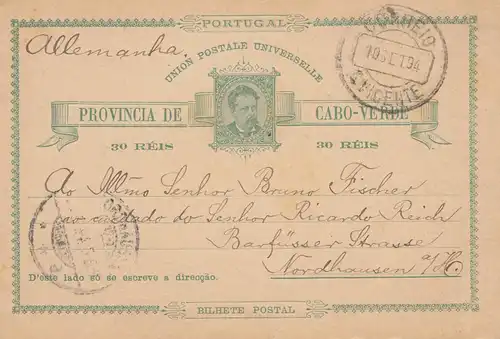 PORTUGAL
Allemanha.
UNION POSTALE UNIVERSELLE
CORREIO
10 SET 94
S. VICENTE
PROVINCIA DE CABO-VERDE
30 RÉIS 30 RÉIS
Ao Illmo Senhor Bruno Fischer
ao cuidado do Senhor Ricardo Reich
Barfüsser Strasse
Nordhausen a/H.
D'este lado só se escreve a direcção.
BILHETE POSTAL